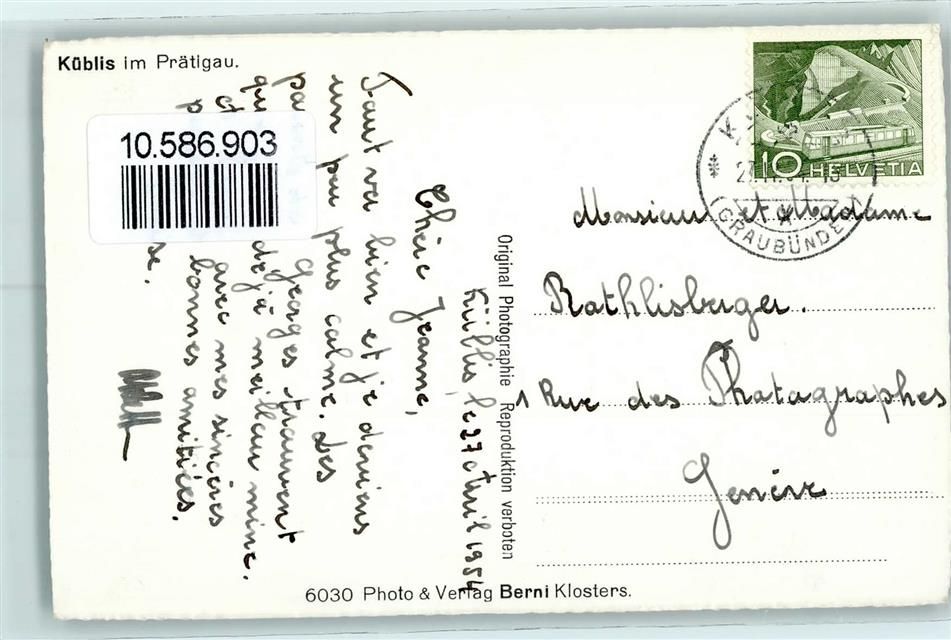 Küblis im Prätigau.
10.586.903
Küblis, le 27 avril 1954
Chère Jeanne,
Tout va bien et je deviens
un peu plus calme. Les
pa Georges trouvent
qu déjà meilleur mine.
avec mes sincères
bonnes amitiés.
se.
Original Photographie Reproduktion verboten
10 HELVETIA
(GRAUBÜNDEN)
Monsieur et Madame
Rathlisberger.
1 Rue des Photographes
Genève
6030 Photo & Verlag Berni Klosters.